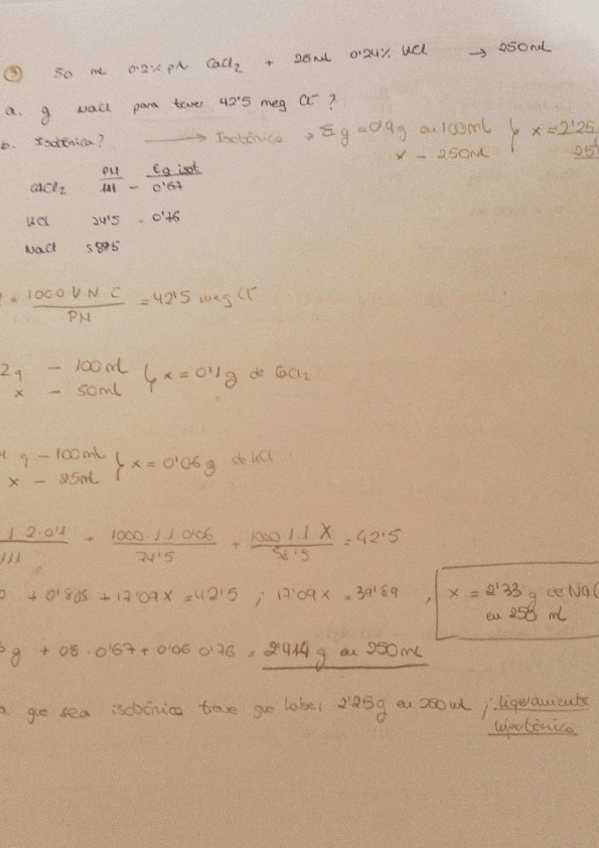 ③ 50 ml 0'2% P/V CaCl₂ + 25ml 0'24% KCl → 250ml
a. g NaCl para tener 42'5 meq Cl⁻?
b. Isotónica? → Isotónico → Σg = 0'9g en 100ml } x = 2'25
x - 250ml 25
PM Eq isot
CaCl₂ 111 - 0'57
KCl 74'5 - 0'76
NaCl 58'5
= 1000·V·N·C / PM = 42'5 meq Cl⁻
2g - 100ml } x = 0'1g de CaCl₂
x - 50ml
4 g - 100ml } x = 0'06g de KCl
x - 25ml
1.2.0'1 / 111 + 1000.1.1.0'06 / 74'5 + 1000.1.1.X / 58'5 = 42'5
+ 0'805 + 17'09x = 42'5 ; 17'09x = 39'89 , x = 2'33 g de NaCl
en 250 ml
g + 0'57 + 0'06 0'76 = 2'414 g en 250ml
que sea isotónico tiene que haber 2'25g en 250ml ; ligeramente